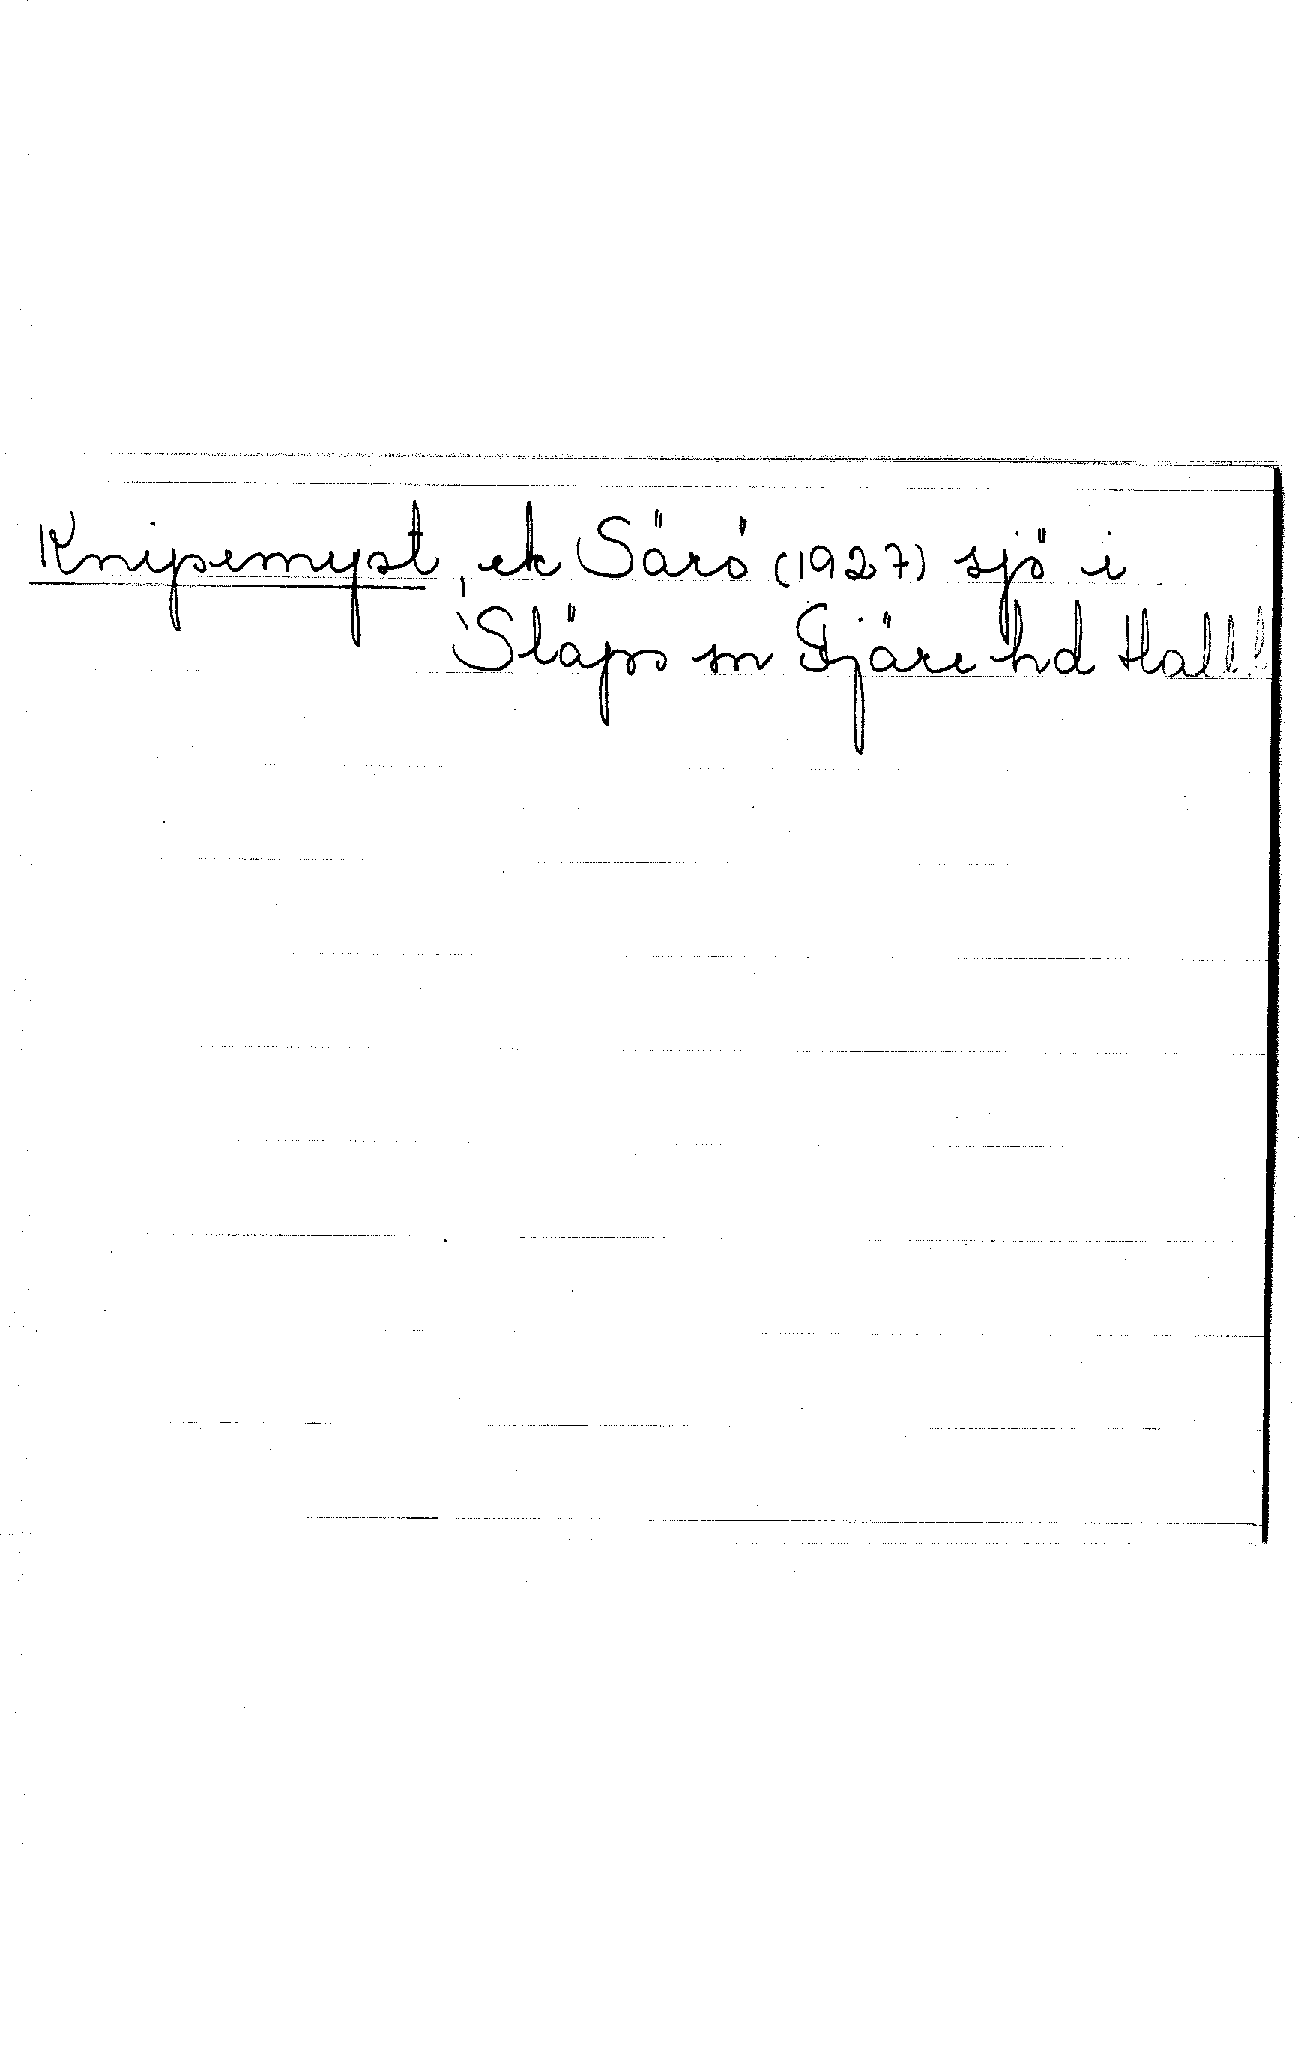 Knipemyst, ek Särö (1927) sjö i
Släps sn Fjäre hd Hall.